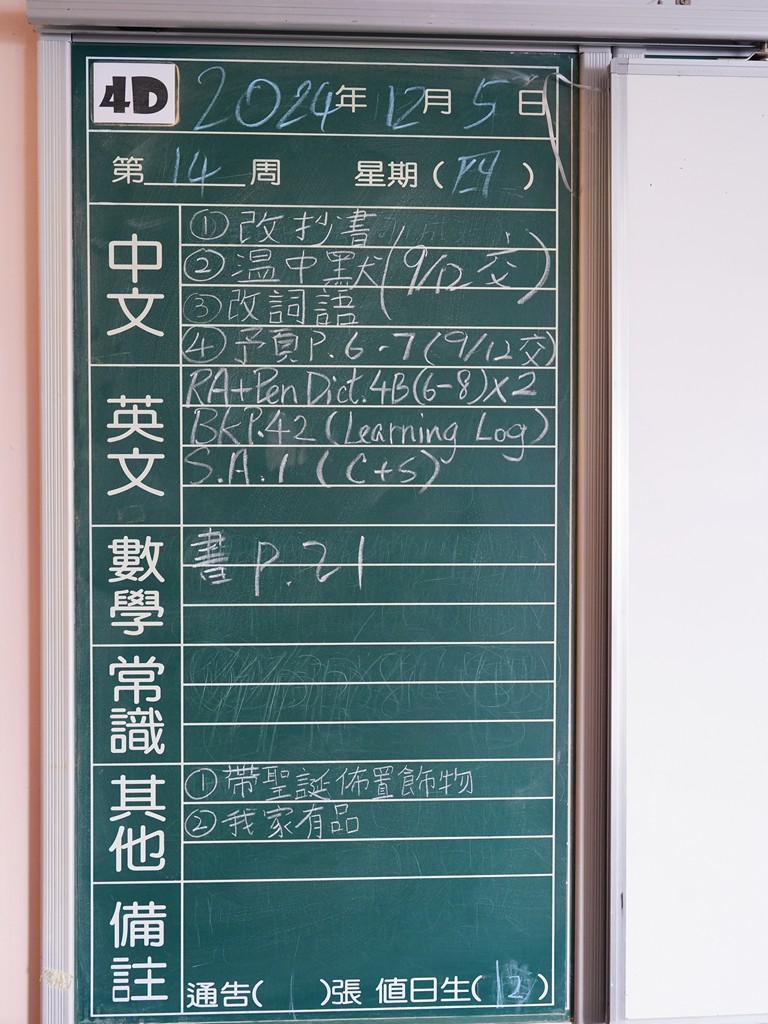 4D 2024年12月5日
第14周 星期(四)
中文
①改抄書
②溫中默(9/12交)
③改詞語
④予頁P.6-7(9/12交)
英文
RA+Pen Dict.4B(6-8)X2
BK P.42 (Learning Log)
S.A.1 (C+S)
數學
書 P.21
常識
其他
①帶聖誕佈置飾物
②我家有品
備註
通告( )張 值日生(12)